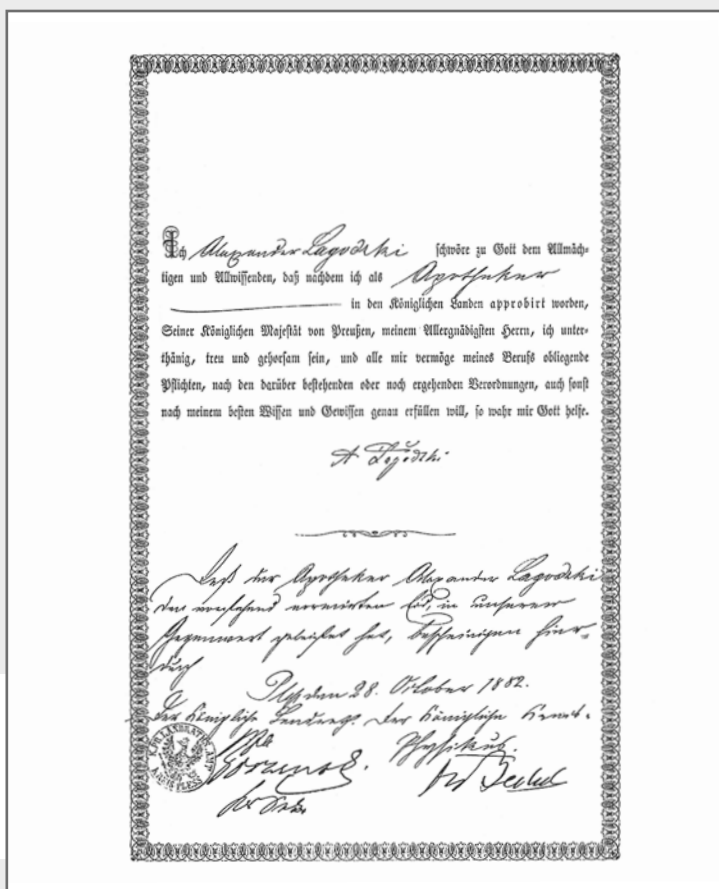 Ich Alexander Lagodzki schwöre zu Gott dem Allmäch-
tigen und Allwissenden, daß nachdem ich als Apotheker
in den Königlichen Landen approbirt worden,
Seiner Königlichen Majestät von Preußen, meinem Allergnädigsten Herrn, ich unter-
thänig, treu und gehorsam sein, und alle mir vermöge meines Berufs obliegende
Pflichten, nach den darüber bestehenden oder noch ergehenden Verordnungen, auch sonst
nach meinem besten Wissen und Gewissen genau erfüllen will, so wahr mir Gott helfe.
A Lagodzki
Daß der Apotheker Alexander Lagodzki
den vorstehend normirten Eid, in unserer
Gegenwart geleistet hat, bescheinigen hier-
durch
Pleß den 28. October 1882.
Der Königliche Landrath. Der Königliche Kreis-
Physikus.